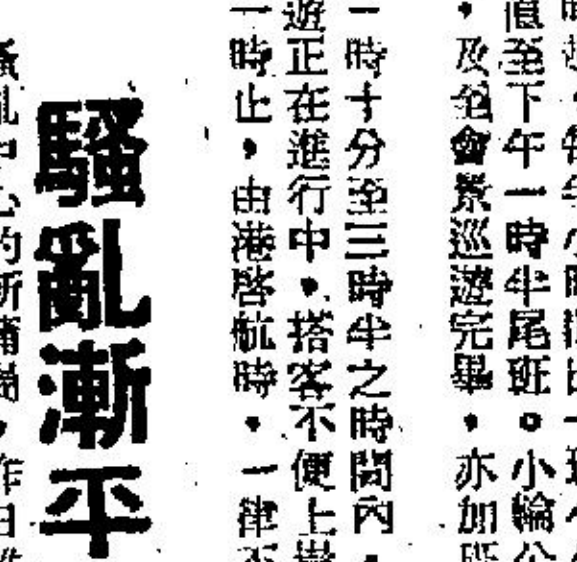 直至下午一時半尾班。小輪公
,及會景巡遊完畢,亦加班
一時十分至三時半之時間內,
遊正在進行中,搭客不便上岸
一時止,由港啓航時,一律不
騷亂漸平
騷亂中心的新蒲崗,昨日